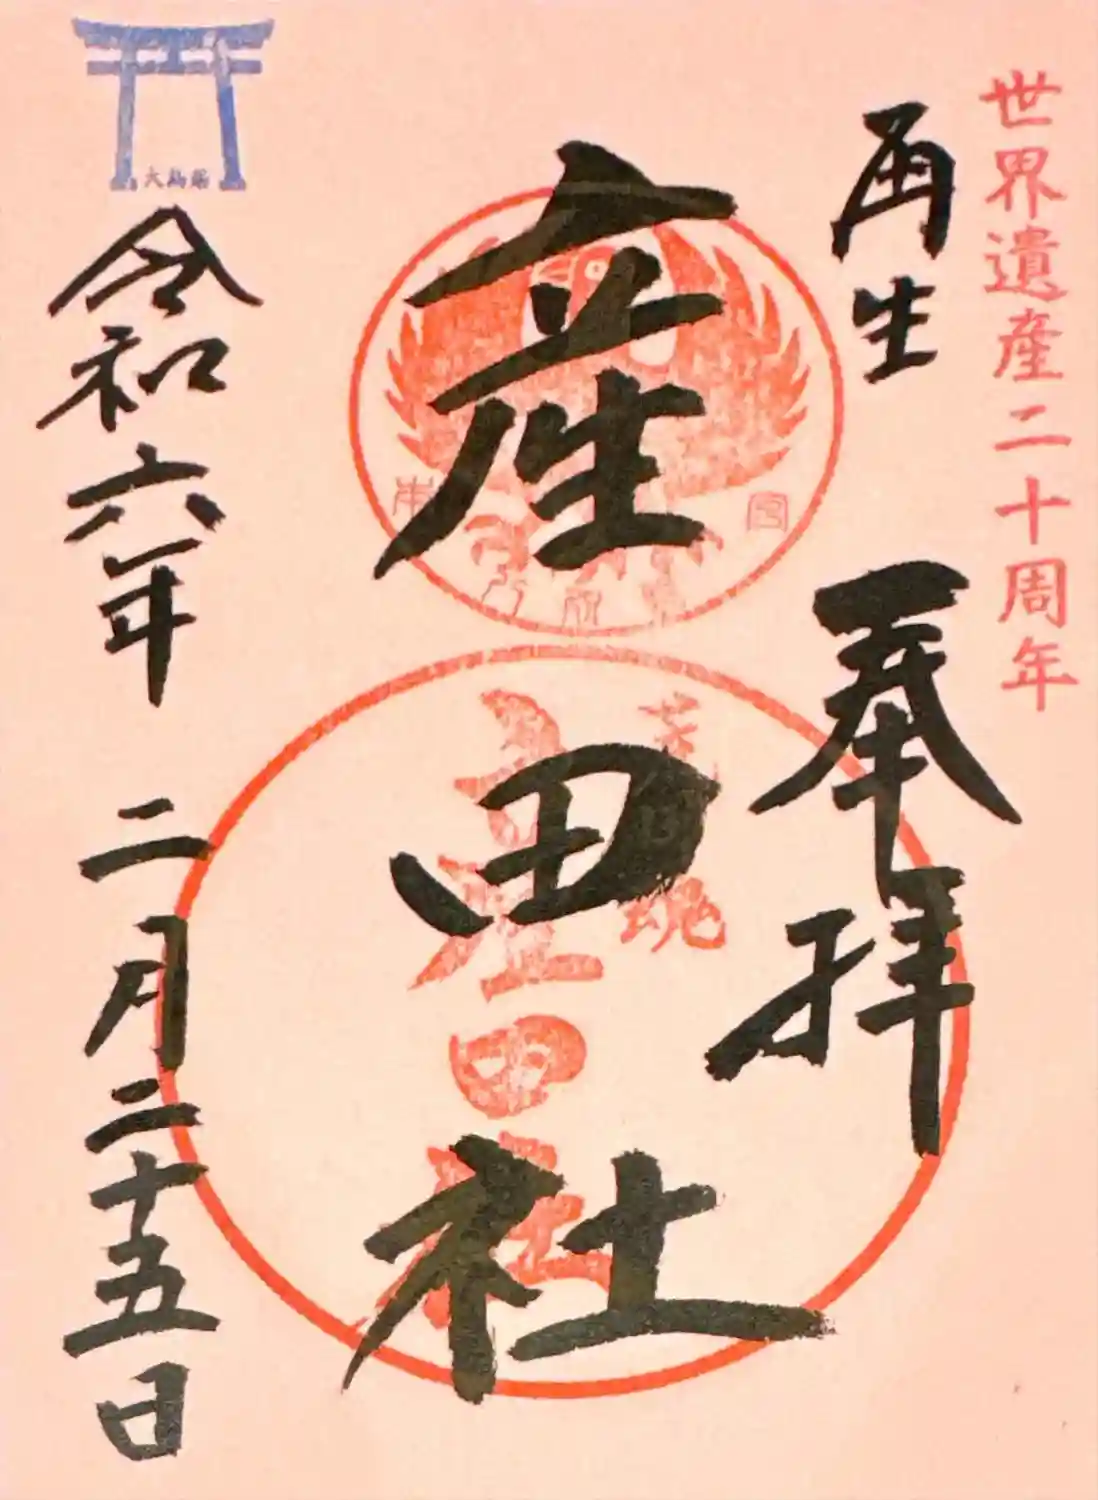 世界遺産二十周年
再生
奉拝
産田社
荒魂
産田社
本宮
大鳥居
令和六年 二月二十五日